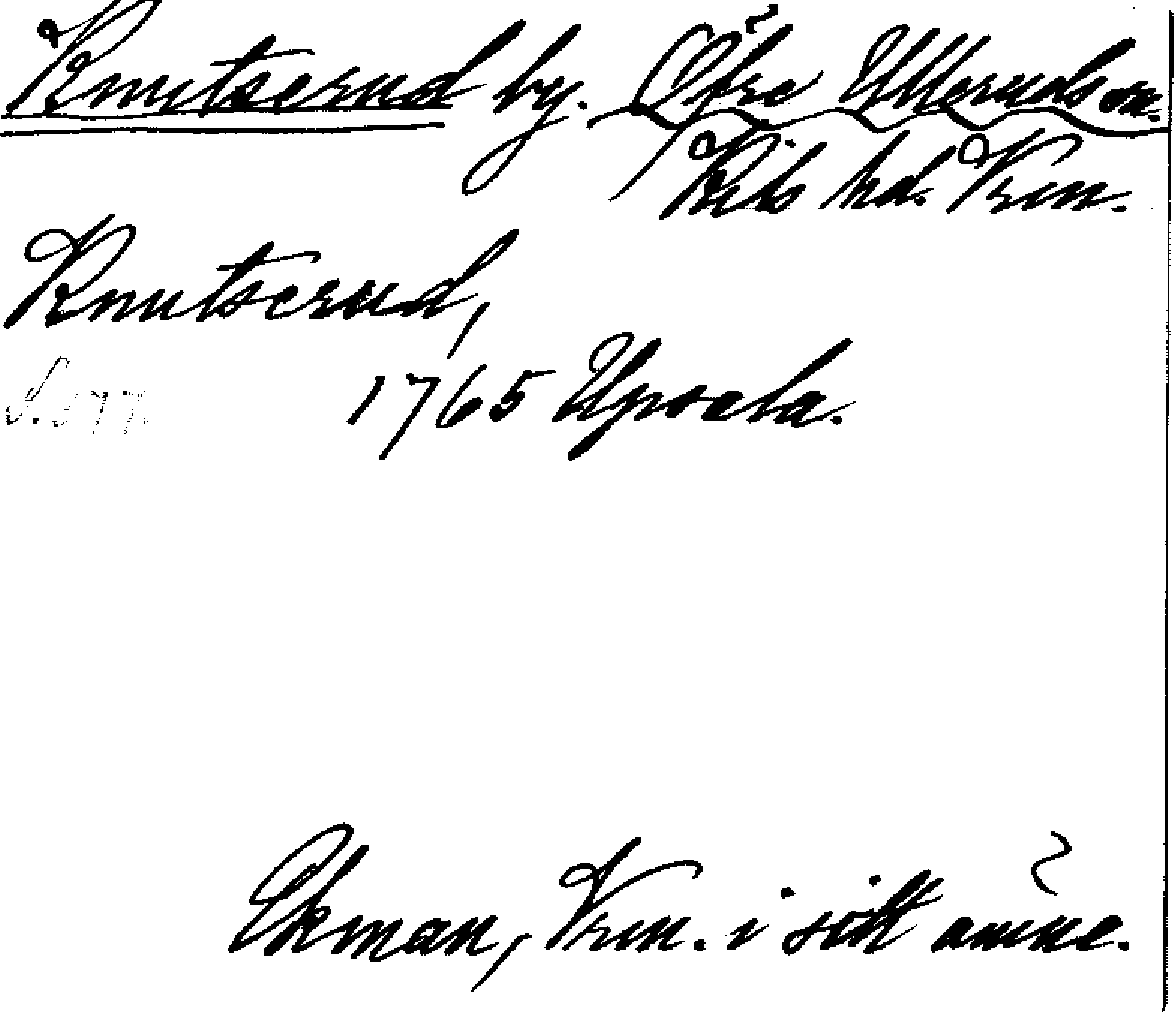 Knutserud by. Öfre Ulleruds sn.
Kils hd. Vrm.
Knutserud,
1765 Upsala.
Ekman, Vrm. i sitt ämne.